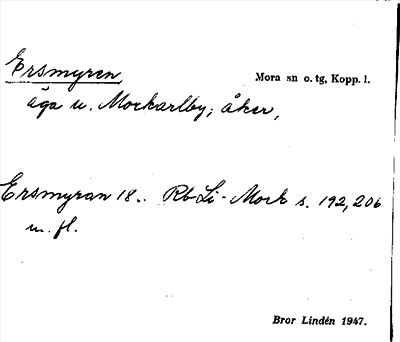 Ersmyren
Mora sn o. tg, Kopp. l.
äga u. Mockarlby; åker,
Ersmyran 18.. Rb Li-Mork s. 192, 206
m. fl.
Bror Lindén 1947.